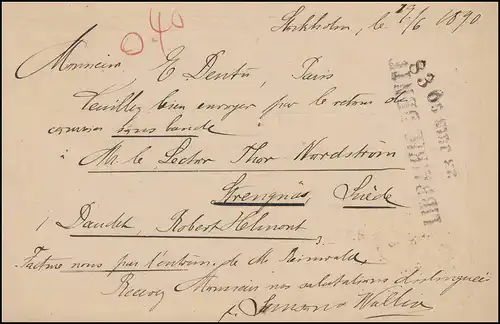 0.40
Stockholm, le 19/6 1890
Monsieur E Dentu, Paris
Veuillez bien envoyer par le retour du
courrier sous bande
à M. le Lector Thor Nordström
Strengnäs, Suède
1 Daudet, Robert Helmont
3.-
Facture nous par l'entrem. de M. Reinwald
Recevez Monsieur nos salutations distinguées
Samson & Wallin